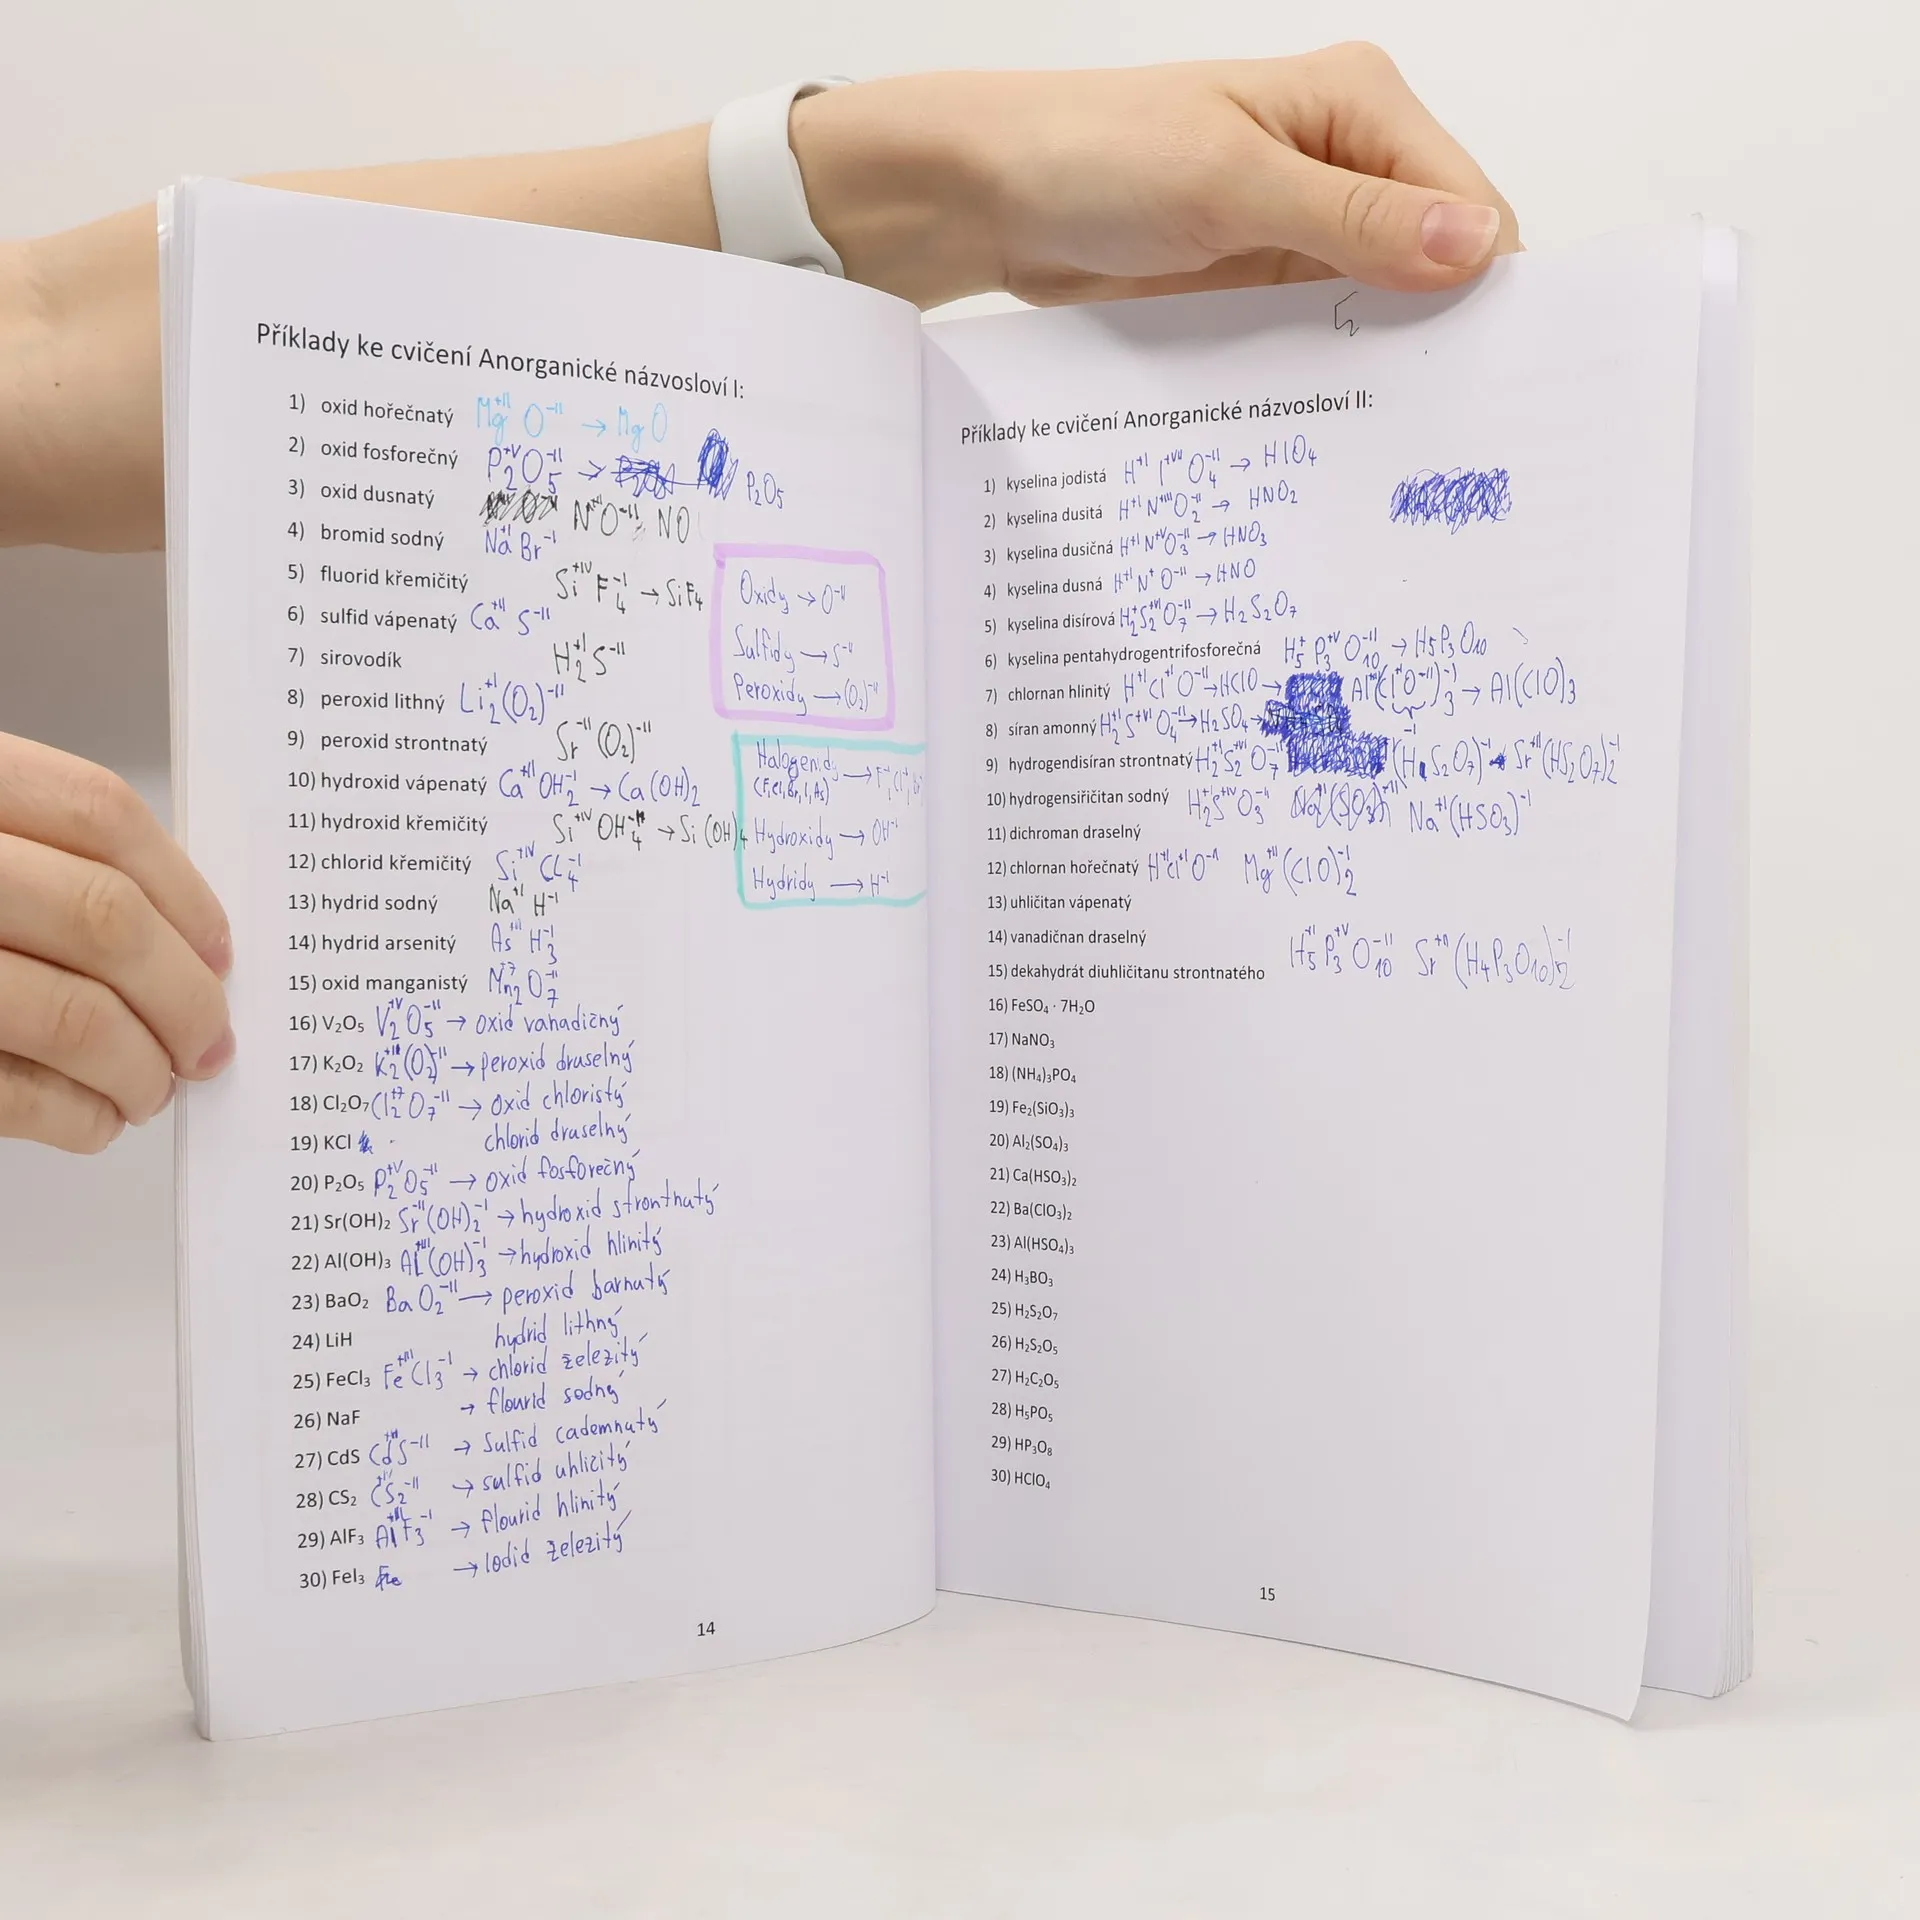 Příklady ke cvičení Anorganické názvosloví I:
1) oxid hořečnatý Mg⁺ᴵᴵ O⁻ᴵᴵ → MgO
2) oxid fosforečný P₂⁺ⱽ O₅⁻ᴵᴵ → P₂O₅
3) oxid dusnatý N⁺ᴵᴵO⁻ᴵᴵ NO
4) bromid sodný Na⁺ᴵ Br⁻ᴵ
5) fluorid křemičitý Si⁺ᴵⱽ F₄⁻ᴵ → SiF₄
6) sulfid vápenatý Ca⁺ᴵᴵ S⁻ᴵᴵ
7) sirovodík H₂⁺ᴵ S⁻ᴵᴵ
8) peroxid lithný Li₂⁺ᴵ (O₂)⁻ᴵᴵ
9) peroxid strontnatý Sr⁻ᴵᴵ (O₂)⁻ᴵᴵ
10) hydroxid vápenatý Ca⁺ᴵᴵ OH₂⁻ᴵ → Ca(OH)₂
11) hydroxid křemičitý Si⁺ᴵⱽ OH₄ → Si(OH)₄
12) chlorid křemičitý Si⁺ᴵⱽ Cl₄⁻ᴵ
13) hydrid sodný Na⁺ᴵ H⁻ᴵ
14) hydrid arsenitý As⁺ᴵᴵᴵ H₃⁻ᴵ
15) oxid manganistý Mn₂⁺⁷ O₇⁻ᴵᴵ
16) V₂O₅ V₂⁺ⱽ O₅⁻ᴵᴵ → oxid vanadičný
17) K₂O₂ K₂ (O₂)⁻ᴵᴵ → peroxid draselný
18) Cl₂O₇ Cl₂⁺⁷ O₇⁻ᴵᴵ → oxid chloristý
19) KCl chlorid draselný
20) P₂O₅ P₂⁺ⱽ O₅⁻ᴵᴵ → oxid fosforečný
21) Sr(OH)₂ Sr⁻ᴵᴵ (OH)₂⁻ᴵ → hydroxid strontnatý
22) Al(OH)₃ Al⁺ᴵᴵᴵ (OH)₃⁻ᴵ → hydroxid hlinitý
23) BaO₂ Ba O₂⁻ᴵᴵ → peroxid barnatý
24) LiH hydrid lithný
25) FeCl₃ Fe⁺ᴵᴵᴵ Cl₃⁻ᴵ → chlorid železitý
26) NaF → flourid sodný
27) CdS Cd⁺ᴵᴵ S⁻ᴵᴵ → Sulfid cademnatý
28) CS₂ C⁺ᴵⱽ S₂⁻ᴵᴵ → sulfid uhličitý
29) AlF₃ Al⁺ᴵᴵᴵ F₃⁻ᴵ → flourid hlinitý
30) FeI₃ → Iodid železitý
Oxidy → O⁻ᴵᴵ
Sulfidy → S⁻ᴵᴵ
Peroxidy → (O₂)⁻ᴵᴵ
Halogenidy →
(F, Cl, Br, I, As)
Hydroxidy → OH⁻ᴵ
Hydridy → H⁻ᴵ
14
Příklady ke cvičení Anorganické názvosloví II:
1) kyselina jodistá H⁺ᴵ I⁺ⱽᴵᴵ O₄⁻ᴵᴵ → HIO₄
2) kyselina dusitá H⁺ᴵ N⁺ᴵᴵᴵ O₂⁻ᴵᴵ → HNO₂
3) kyselina dusičná H⁺ᴵ N⁺ⱽ O₃⁻ᴵᴵ → HNO₃
4) kyselina dusná H⁺ᴵ N⁺ O⁻ᴵᴵ → HNO
5) kyselina disírová H₂⁺ S₂⁺ⱽᴵ O₇⁻ᴵᴵ → H₂S₂O₇
6) kyselina pentahydrogentrifosforečná H₅⁺ P₃⁺ⱽ O₁₀⁻ᴵᴵ → H₅P₃O₁₀
7) chlornan hlinitý H⁺ᴵ Cl⁺ᴵ O⁻ᴵᴵ → HClO → Al⁺ᴵᴵᴵ(Cl⁺ᴵO⁻ᴵᴵ)₃⁻ᴵ → Al(ClO)₃
8) síran amonný H₂⁺ᴵ S⁺ⱽᴵ O₄⁻ᴵᴵ → H₂SO₄ →
9) hydrogendisíran strontnatý H₂⁺ᴵ S₂⁺ⱽᴵ O₇⁻ᴵᴵ (H₁S₂O₇)⁻ᴵ Sr⁺ᴵᴵ(HS₂O₇)₂⁻ᴵ
10) hydrogensiřičitan sodný H₂⁺ᴵ S⁺ᴵⱽ O₃⁻ᴵᴵ Na⁺ᴵ (HSO₃)⁻ᴵ
11) dichroman draselný
12) chlornan hořečnatý H⁺ᴵCl⁺ᴵO⁻ᴵᴵ Mg⁺ᴵᴵ (ClO)₂⁻ᴵ
13) uhličitan vápenatý
14) vanadičnan draselný
15) dekahydrát diuhličitanu strontnatého H₅⁺ᴵ P₃⁺ⱽ O₁₀⁻ᴵᴵ Sr⁺ᴵᴵ (H₄P₃O₁₀)₂⁻ᴵ
16) FeSO₄ · 7H₂O
17) NaNO₃
18) (NH₄)₃PO₄
19) Fe₂(SiO₃)₃
20) Al₂(SO₄)₃
21) Ca(HSO₃)₂
22) Ba(ClO₃)₂
23) Al(HSO₄)₃
24) H₃BO₃
25) H₂S₂O₇
26) H₂S₂O₅
27) H₂C₂O₅
28) H₅PO₅
29) HP₃O₈
30) HClO₄
15